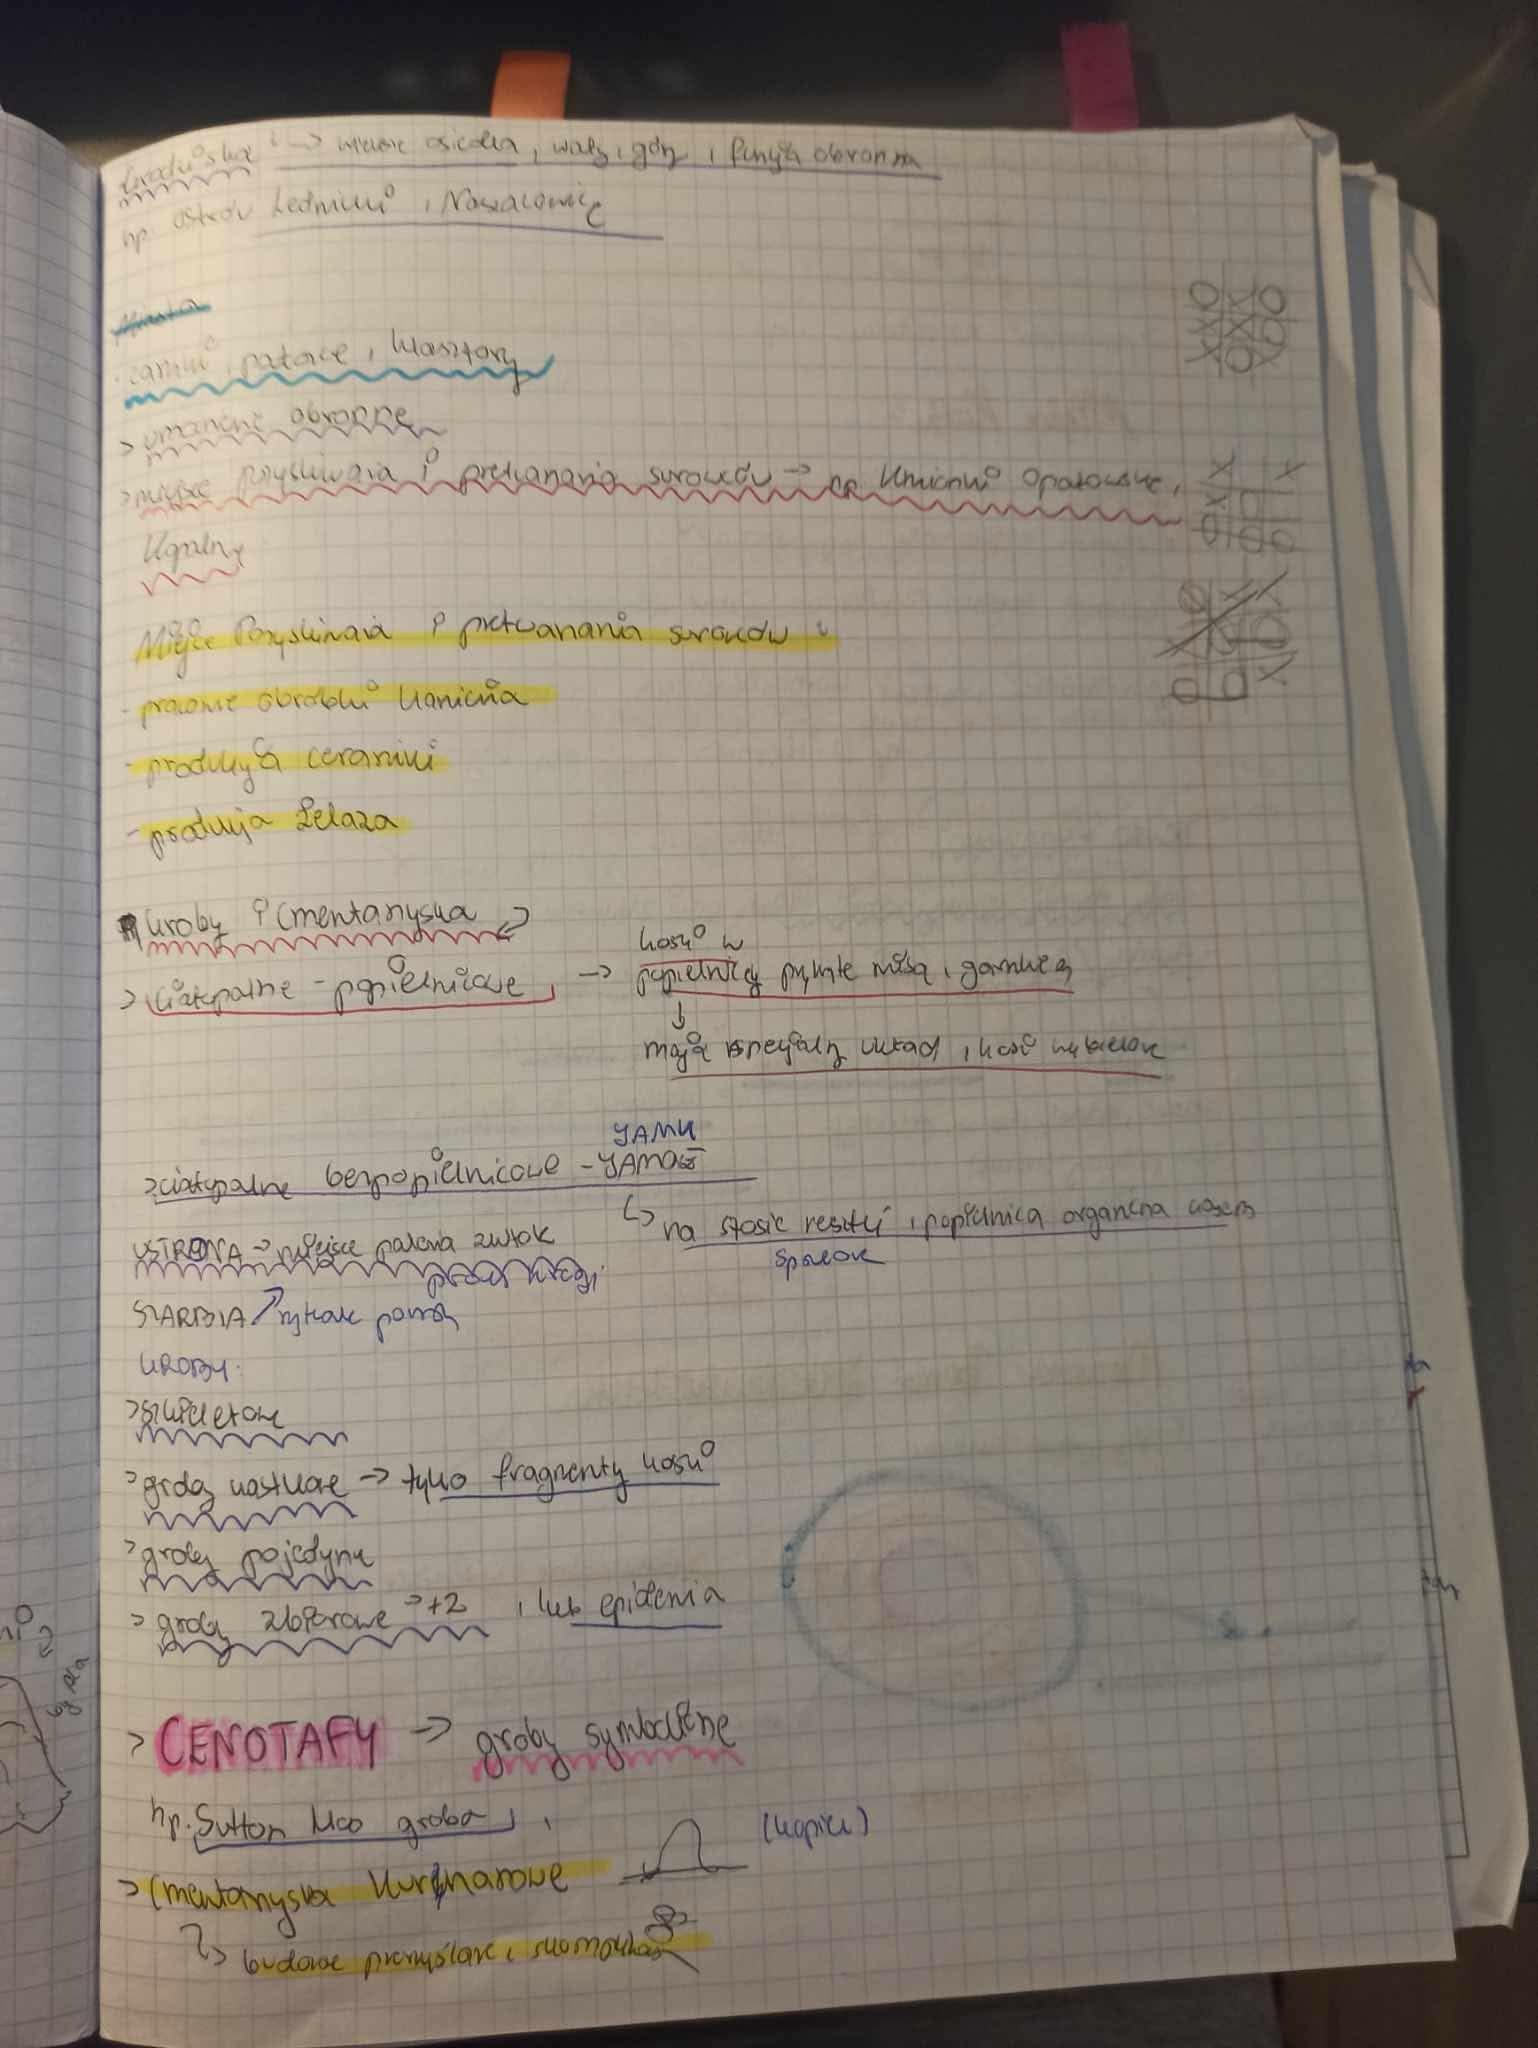 Grodziska → wielkie osiedla, wały, grody, funkcja obronna
np. Ostrów Lednicki, Naszacowice
Miasta
zamki, pałace, klasztory
> umacnienie obronne
> miejsce pozyskiwania i przetwarzania surowców → np. Krzemionki Opatowskie,
Kopalnie
Miejsce Pozyskiwania i przetwarzania surowców
- pracownie obróbki kamienia
- produkcja ceramiki
- produkcja żelaza
Groby i Cmentarzyska
> Ciałopalne - popielnicowe → kości w
popielnicy przykryte misą, garnkiem
↓
mają specjalny układ, kości
JAMK
> ciałopalne bezpopielnicowe - JAMOWE
↳ na stosie resztki, popielnica organiczna
USTRYNA → miejsce palenia zwłok
kręgi
SZARBIA ↗ rytualne
GROBY:
> szkieletowe
> groby cząstkowe → tylko fragmenty kości
> groby pojedyncze
> groby zbiorowe → +2, lub epidemia
> CENOTAFY → groby symboliczne
np. Sutton Hoo groba
> Cmentarzyska Kurhanowe (kopiec)
↳ budowa